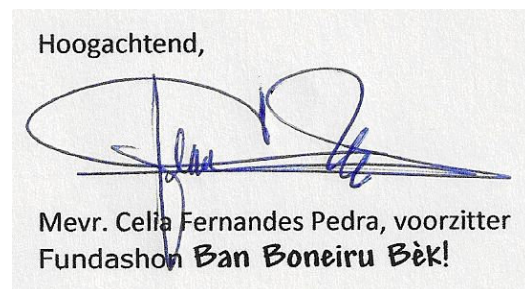 Hoogachtend,
Mevr. Celia Fernandes Pedra, voorzitter
Fundashon Ban Boneiru Bèk!